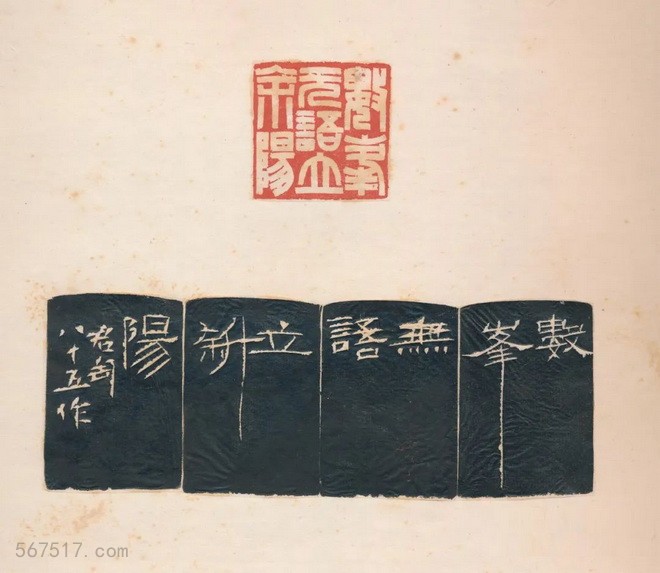 數峯
无語立
余陽
數
峯
無
語
立
斜
陽
君匋
八十五作
567517.com